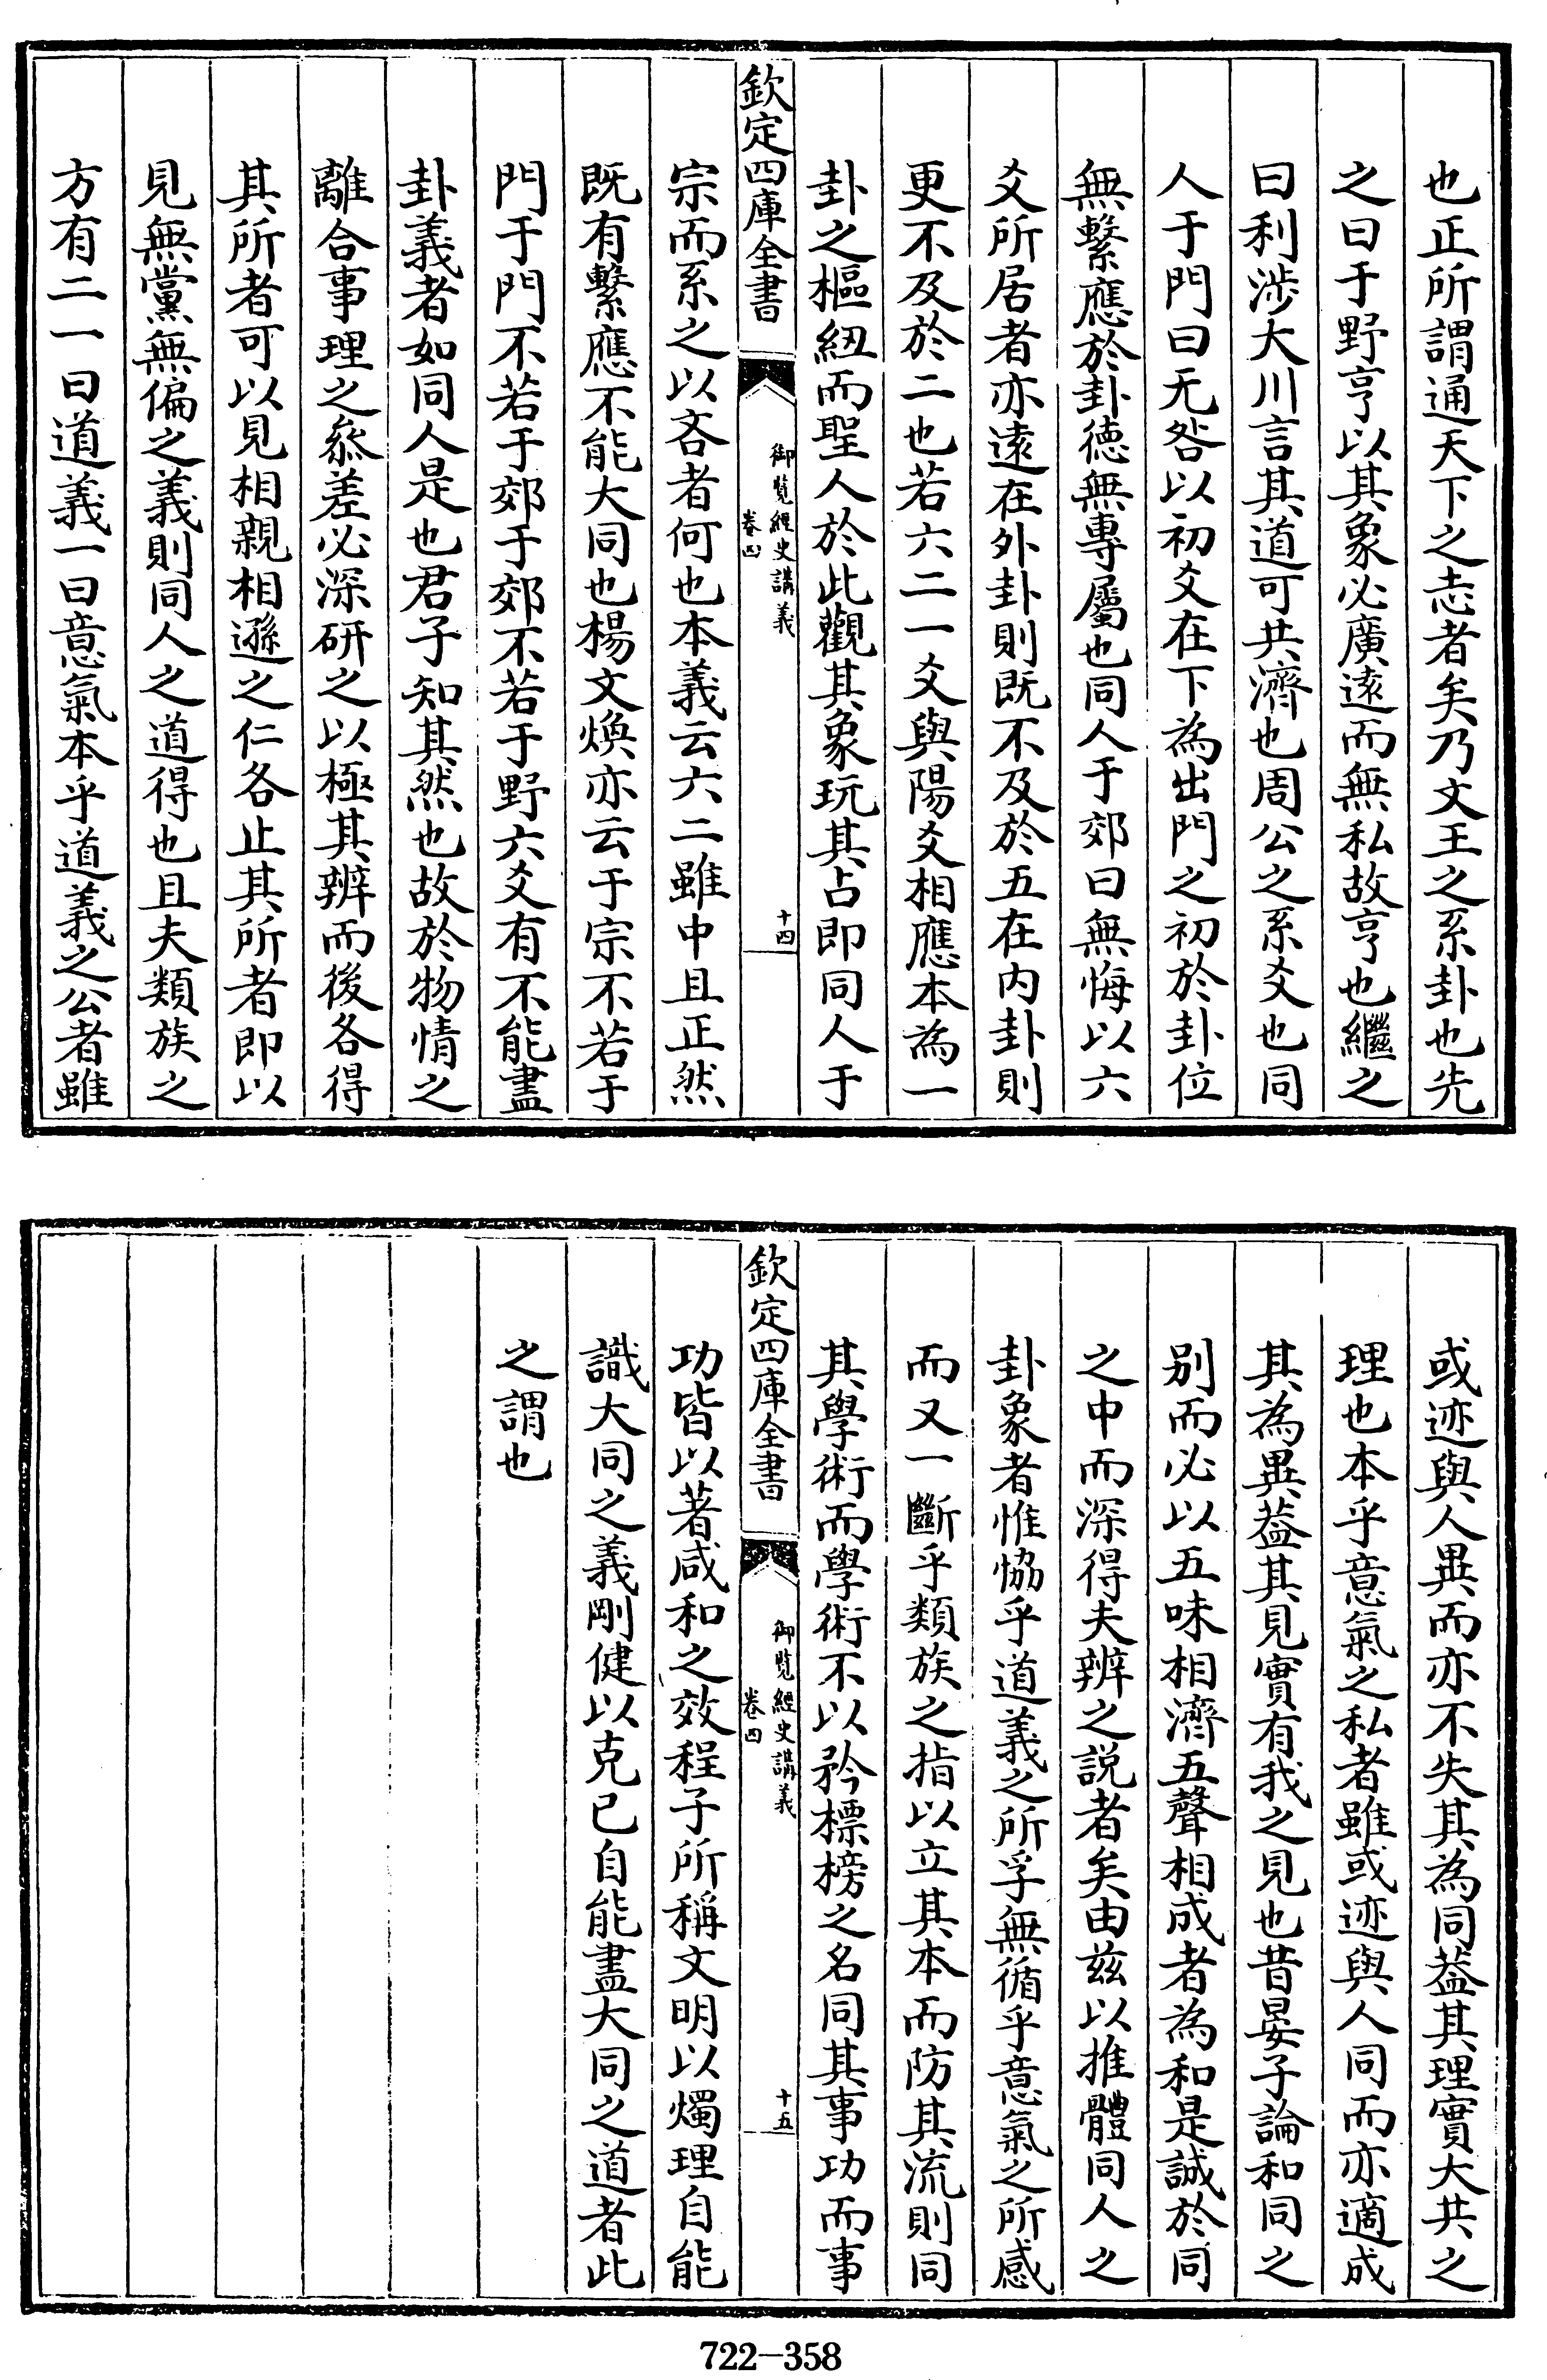 也正所謂通天下之志者矣乃文王之系卦也先
之曰于野亨以其象必廣遠而無私故亨也繼之
曰利涉大川言其道可共濟也周公之系爻也同
人于門曰无咎以初爻在下為出門之初於卦位
無繫應於卦德無專屬也同人于郊曰無悔以六
爻所居者亦遠在外卦則既不及於五在內卦則
更不及於二也若六二一爻與陽爻相應本為一
卦之樞紐而聖人於此觀其象玩其占即同人于
欽定四庫全書
御覽經史講義
卷四
十四
宗而系之以吝者何也本義云六二雖中且正然
既有繫應不能大同也楊文煥亦云于宗不若于
門于門不若于郊于郊不若于野六爻有不能盡
卦義者如同人是也君子知其然也故於物情之
離合事理之叅差必深研之以極其辨而後各得
其所者可以見相親相遜之仁各止其所者即以
見無黨無偏之義則同人之道得也且夫類族之
方有二一曰道義一曰意氣本乎道義之公者雖
或迹與人異而亦不失其為同葢其理實大共之
理也本乎意氣之私者雖或迹與人同而亦適成
其為異葢其見實有我之見也昔晏子論和同之
别而必以五味相濟五聲相成者為和是誠於同
之中而深得夫辨之說者矣由兹以推體同人之
卦象者惟恊乎道義之所孚無循乎意氣之所感
而又一斷乎類族之指以立其本而防其流則同
其學術而學術不以矜標榜之名同其事功而事
欽定四庫全書
御覽經史講義
卷四
十五
功皆以著咸和之效程子所稱文明以燭理自能
識大同之義剛健以克已自能盡大同之道者此
之謂也
722—358